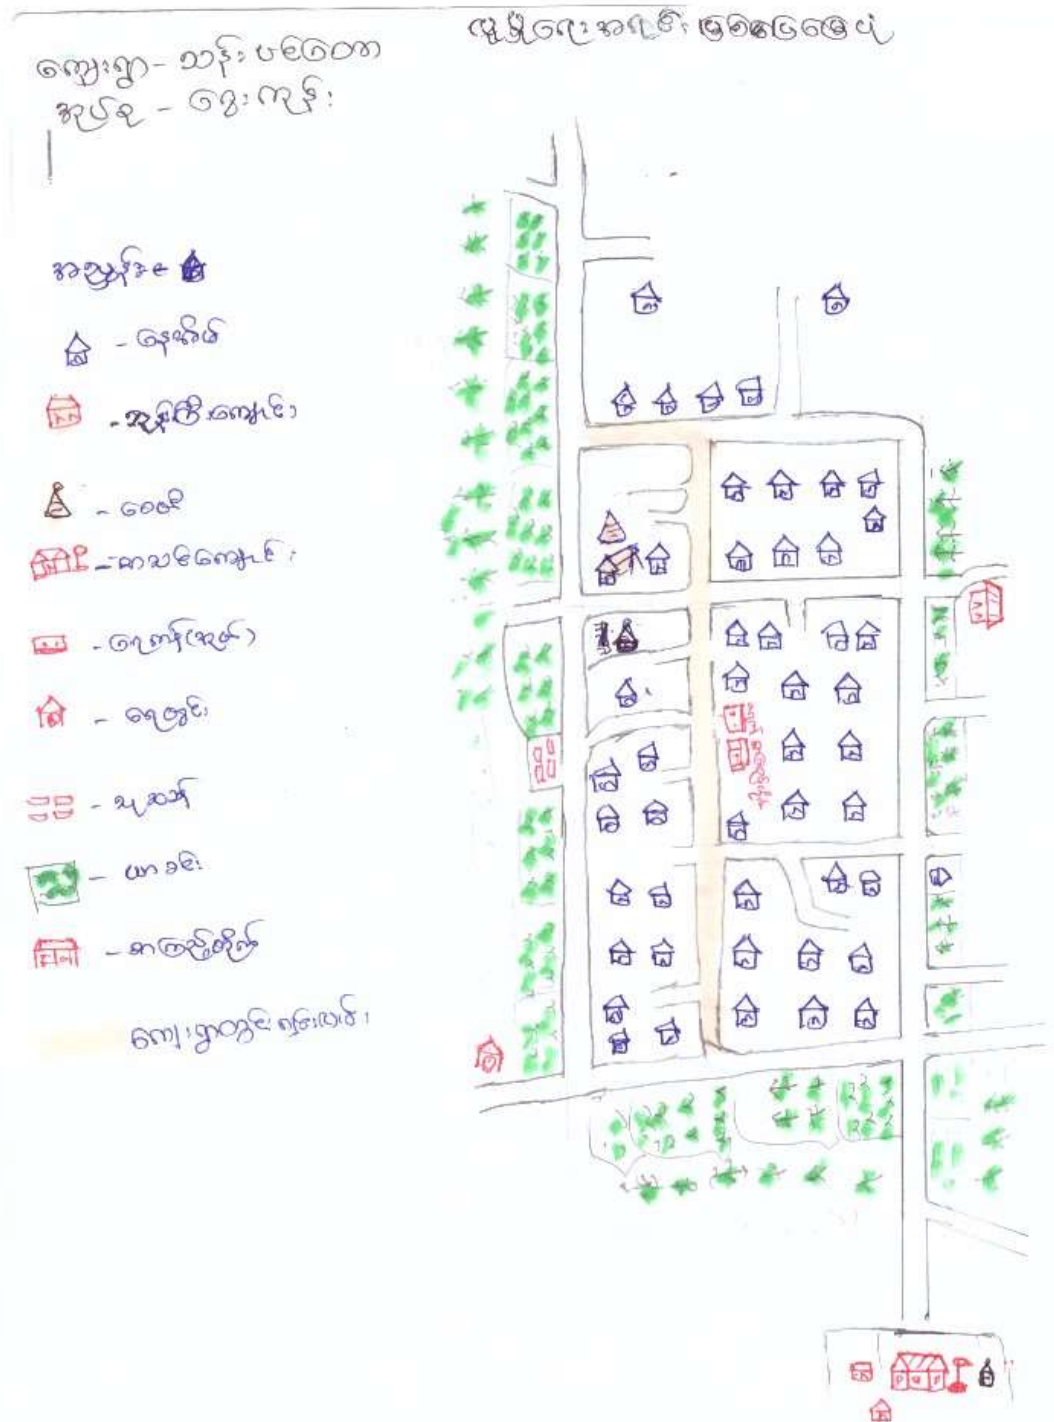 လူမှုရေးအရင်းအမြစ်ပြမြေပုံ
ကျေးရွာ - သန်းပင်တော
အုပ်စု - ခွေးကုန်း
အညွှန်း
- နေအိမ်
- ဘုန်းကြီးကျောင်း
- စေတီ
- စာသင်ကျောင်း
- ရေကန်(အုတ်)
- ရေတွင်း
- သုဿန်
- ယာခင်း
- စာကြည့်တိုက်
ကျေးရွာတွင်းလမ်း